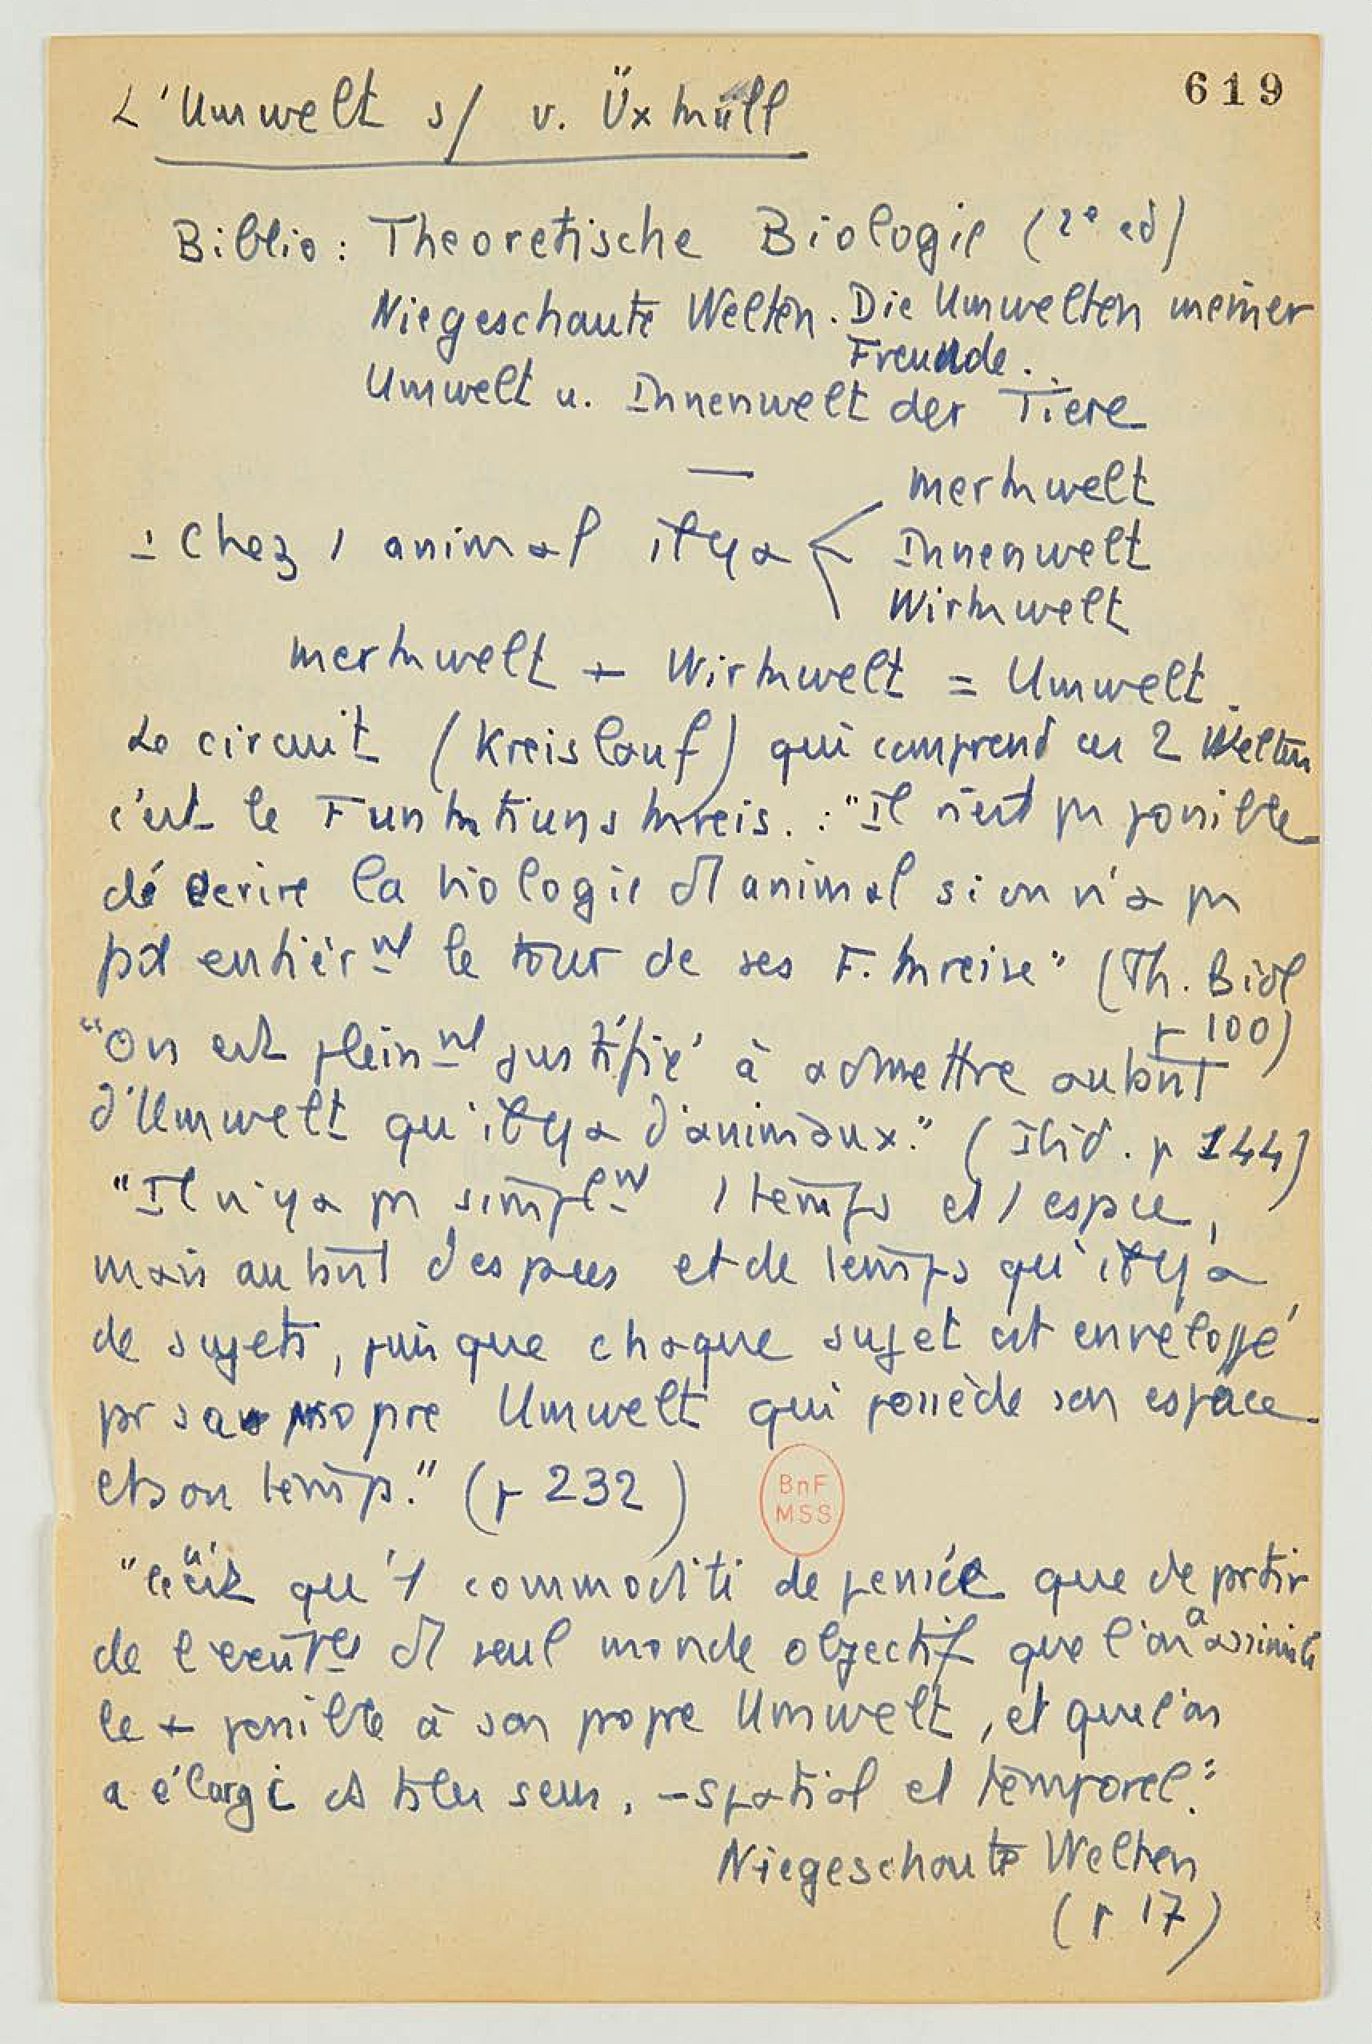 619
L'Umwelt s/ v. Üxküll
Biblio : Theoretische Biologie (2e ed)
Niegeschaute Welten. Die Umwelten meiner
Freunde.
Umwelt u. Innenwelt der Tiere
—
Merkwelt
1 Chez 1 animal il y a < Innenwelt
Wirkwelt
Merkwelt + Wirkwelt = Umwelt.
Le circuit (Kreislauf) qui comprend ces 2 Welten
c'est le Funktiunskreis. : "Il n'est pas possible
dé écrire la biologie d'1 animal si on n'a pas
entièrmt le tour de ses F. kreise" (Th. Biol
p 100)
"On est pleinmt justifié à admettre autant
d'Umwelt qu'il y a d'animaux." (Ibid. p 144)
"Il n'y a pas simplmt 1 temps et 1 espace,
mais autant d'espaces et de temps qu'il y a
de sujets, puisque chaque sujet est enveloppé
par sa propre Umwelt qui possède son espace
et son temps." (p 232)
BnF
MSS
qu'1 commodité de pensée que de partir
de d'1 seul monde objectif que l'on a assimilé
le + possible à son propre Umwelt, et que l'on
a élargi ds ts les sens, - spatial et temporel."
Niegeschaute Welten
(p 17)